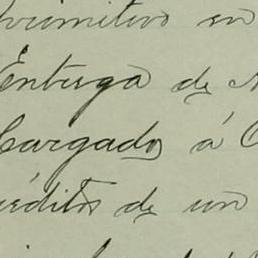 primitivo en
Entrega de
Cargados á
réditos de un